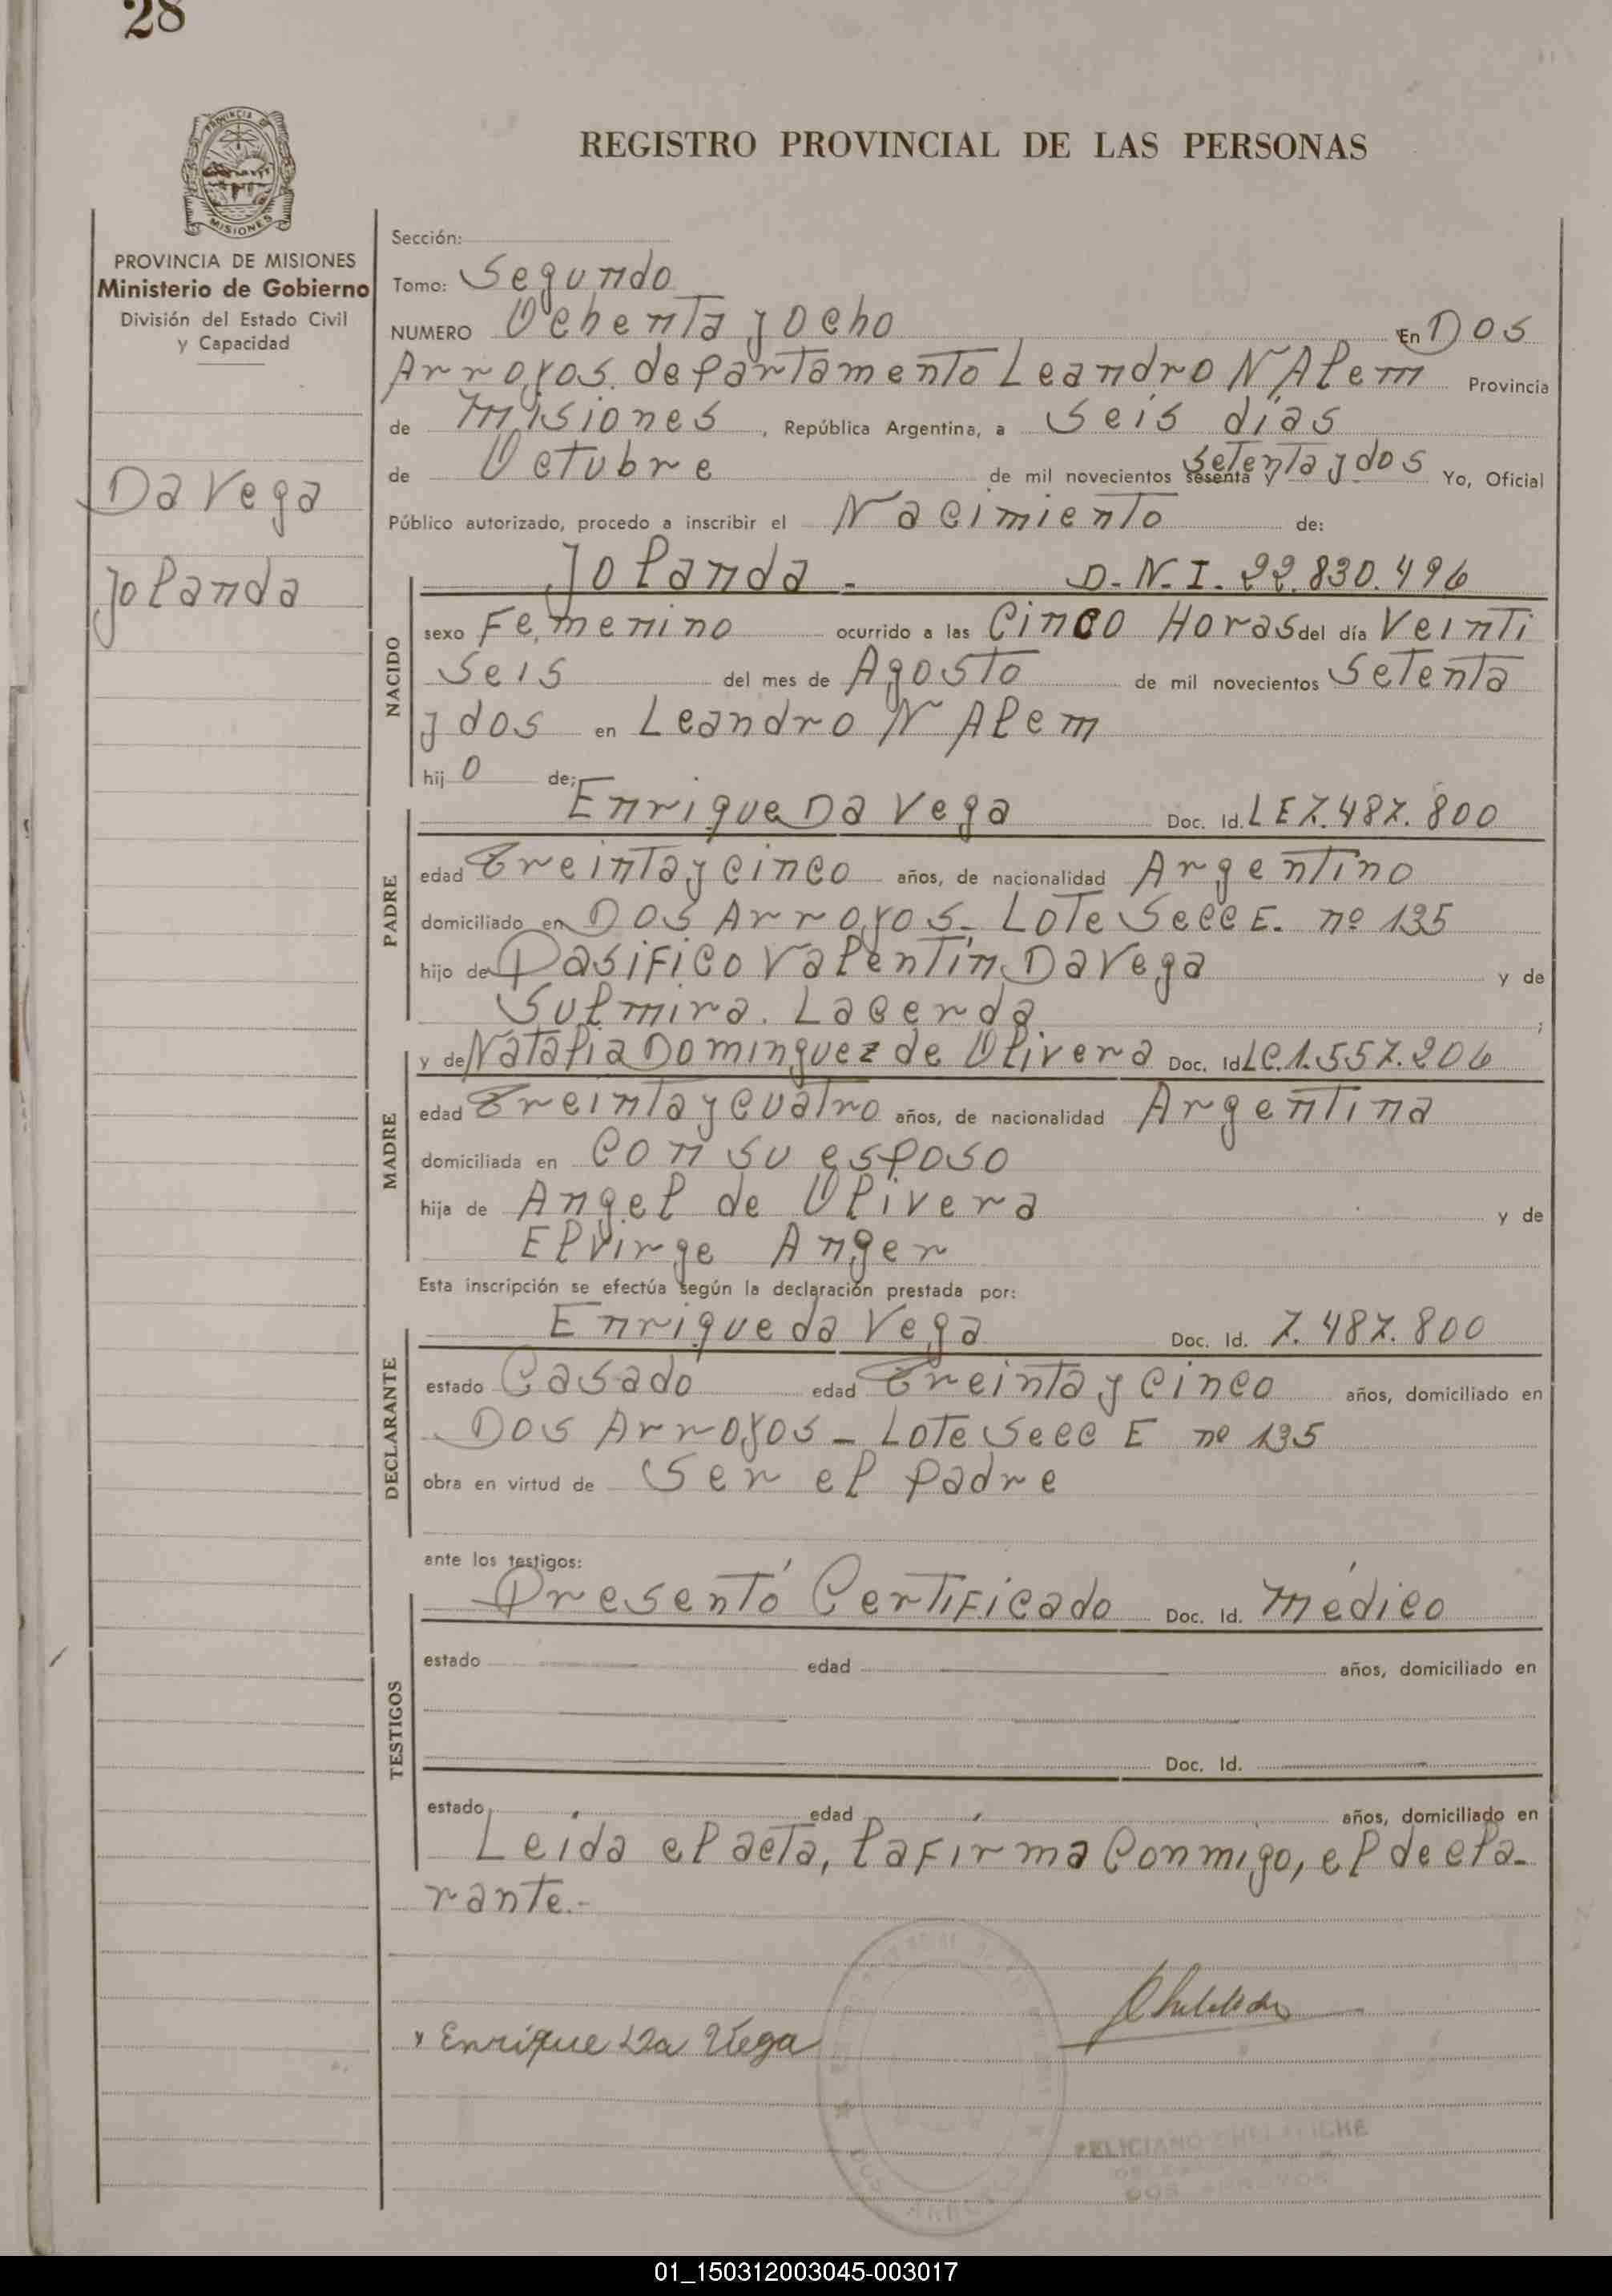 28
PROVINCIA DE
MISIONES
REGISTRO PROVINCIAL DE LAS PERSONAS
PROVINCIA DE MISIONES
Ministerio de Gobierno
División del Estado Civil
y Capacidad
Da Vega
Jolanda
Sección:
Tomo: Segundo
NUMERO Ochenta y Ocho En Dos
Arroyos. departamento Leandro N Alem Provincia
de Misiones, República Argentina, a Seis días
de Octubre de mil novecientos sesenta y Setenta y dos Yo, Oficial
Público autorizado, procedo a inscribir el Nacimiento de:
NACIDO
Jolanda - D.N.I. 22.830.496
sexo Femenino ocurrido a las Cinco Horas del día Veinti
Seis del mes de Agosto de mil novecientos Setenta
y dos en Leandro N Alem
hij o de;
PADRE
Enrique Da Vega Doc. Id. LE 7.487.800
edad Treinta y Cinco años, de nacionalidad Argentino
domiciliado en Dos Arroyos - Lote Secc E. nº 135
hijo de Pasifico Valentín Da Vega y de
Sulmira. Lacerda ;
MADRE
y de Natalia Dominguez de Olivera Doc. Id LC.1.557.206
edad Treinta y cuatro años, de nacionalidad Argentina
domiciliada en con su esposo
hija de Angel de Olivera y de
Elvirge Anger
Esta inscripción se efectúa según la declaración prestada por:
DECLARANTE
Enrique da Vega Doc. Id. 7.487.800
estado Casado edad Treinta y Cinco años, domiciliado en
Dos Arroyos - Lote Secc E nº 135
obra en virtud de Ser el padre
ante los testigos:
TESTIGOS
Presentó Certificado Doc. Id. Médico
estado edad años, domiciliado en
Doc. Id.
estado edad años, domiciliado en
Leída el acta, la firma Conmigo, el decla-
rante.-
x Enrique Da Vega
FELICIANO
DOS ARROYOS
01_150312003045-003017